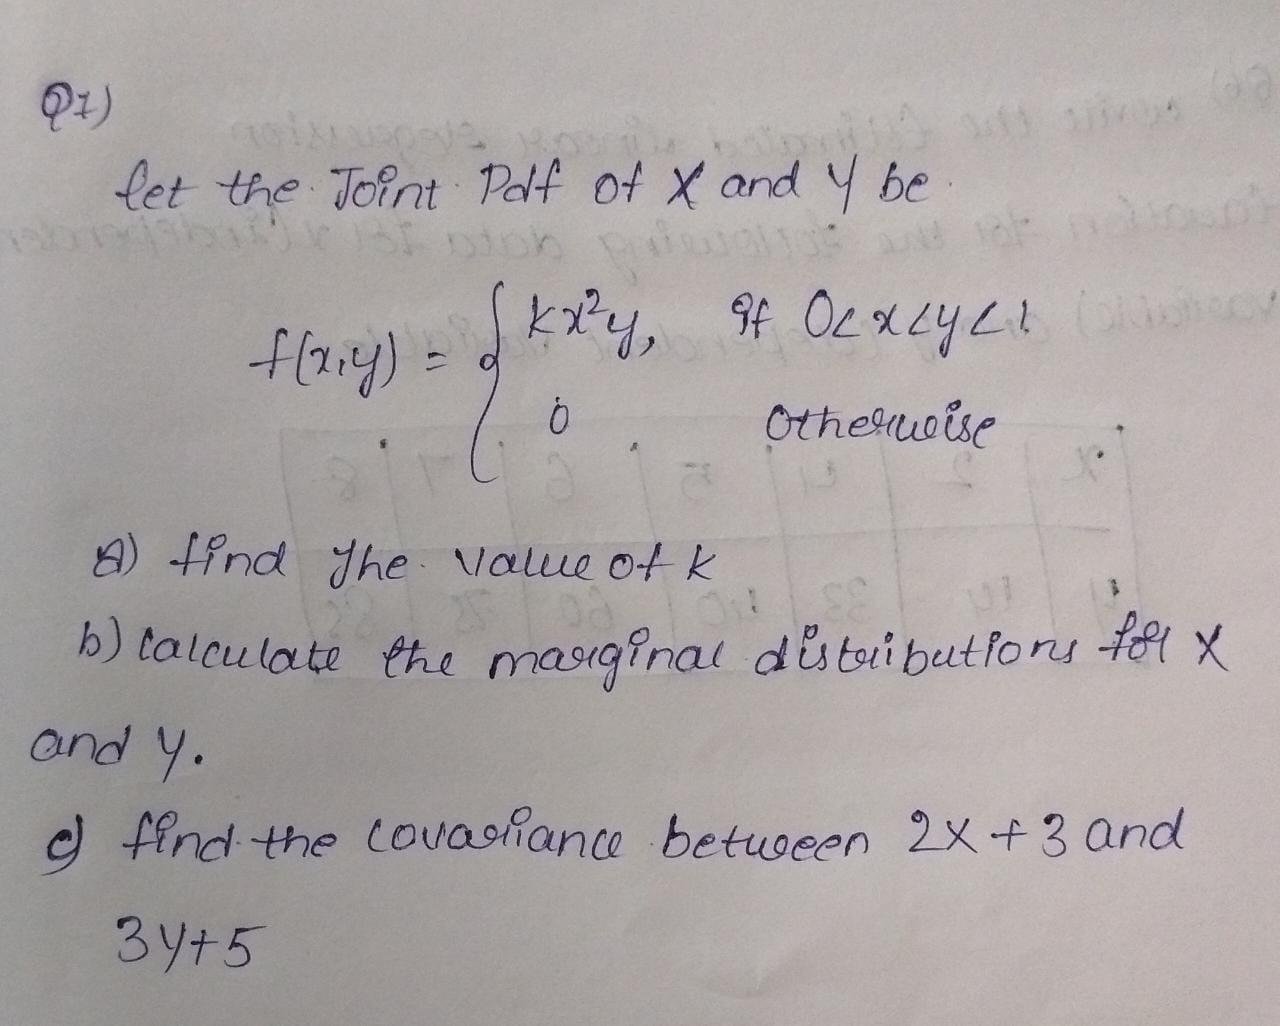 Q7)
let the Joint Pdf of X and Y be
f(x,y) = { kx²y, if 0<x<y<1
0 otherwise
a) find the value of k
b) Calculate the marginal distributions for X
and Y.
c) find the covariance between 2X+3 and
3Y+5